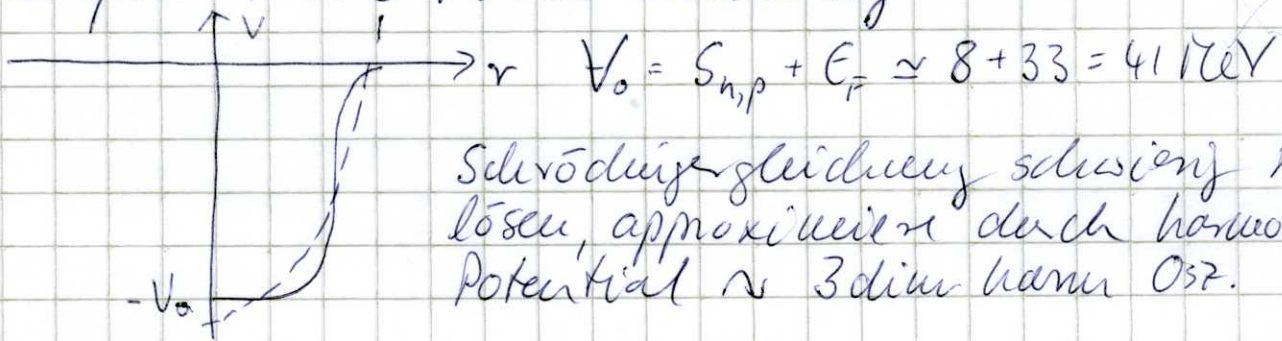 V
r V₀ = S_{n,p} + E_F ≃ 8 + 33 = 41 MeV
Schrödingergleichung schwierig
lösen, approximiere durch harmo
-V₀ Potential ~ 3dim harm Osz.